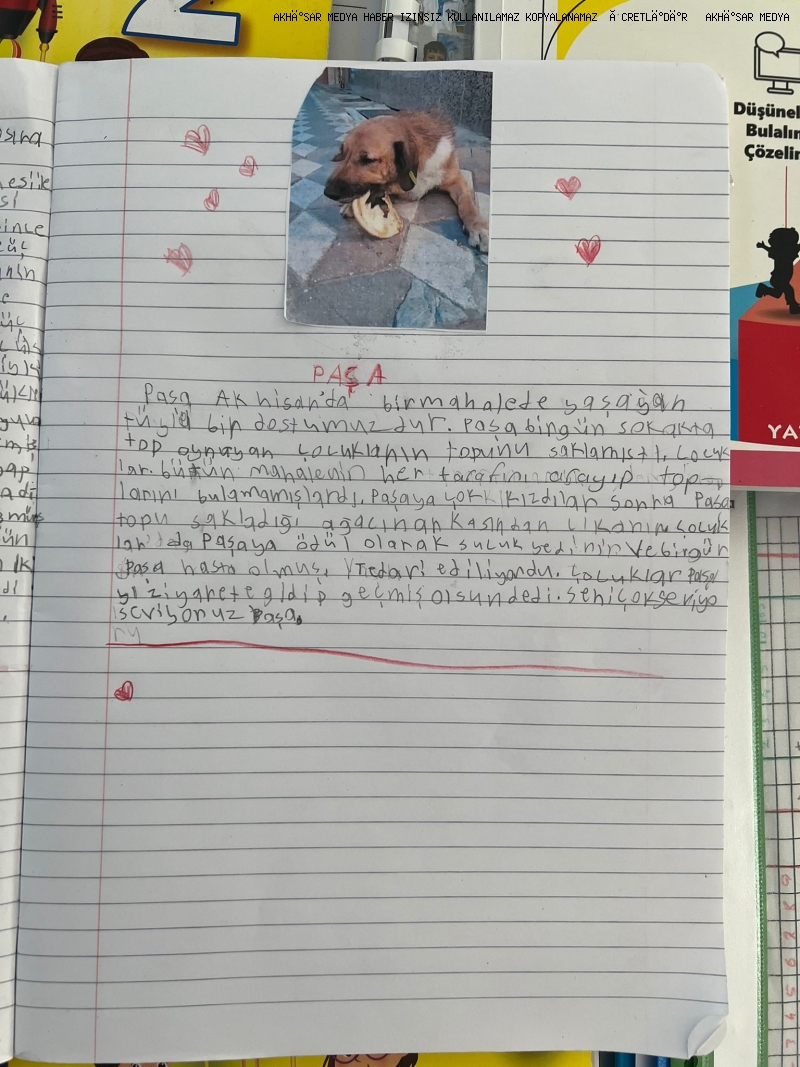 AKHÄ°SAR MEDYA HABER IZINSIZ KULLANILAMAZ KOPYALANAMAZ Ä CRETLÄ°DÄ°R AKHÄ°SAR MEDYA
Düşünel
Bulalın
Çözelin
PAŞA
Paşa Akhisar'da birmahalede yaşağan
tüylü bir dostumuzdur. Paşa birgün sokakta
top oynayan çocuklanın topunu saklamıştı. Çocuk
lar. bütün mahalenin her tarafını arayıp top
larını bulamamışlardı. Paşaya çok kızdılar sonra Paşa
topu sakladığı ağacın arkasından çıkarın çocuk
lar da Paşaya ödül olarak sucuk yedirir Ve birgün
Paşa hasta olmuş, Tredari ediliyordu. Çocuklar Paşa
yı ziyarete gidip geçmiş olsun dedi. Seni çok seviyo
seviyoruz Paşa.
ry
YA